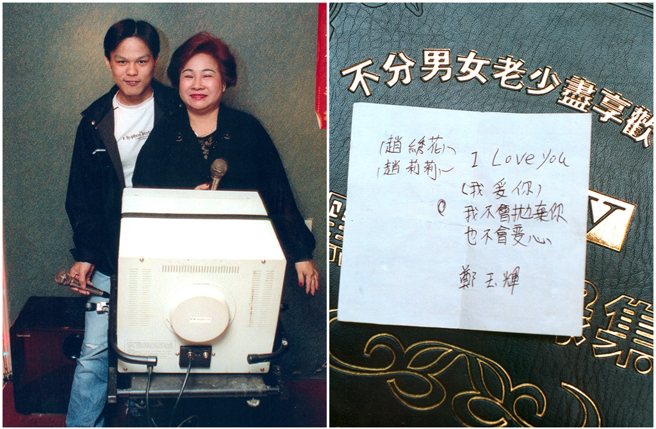 不分男女老少盡享歡
(趙綉花)
(趙莉莉)
I Love You
(我爱你)
我不會拋棄你
也不會变心
鄭玉輝
V
集